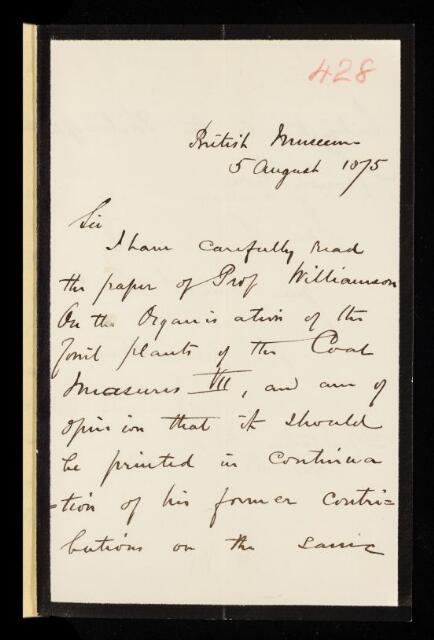 428
British Museum
5 August 1875
Sir
I have carefully read
the paper of Prof Williamson
On the Organis ation of the
fossil plants of the Coal
Measures VII, and am of
opinion that it should
be printed in continua
-tion of his former contri=
butions on the same